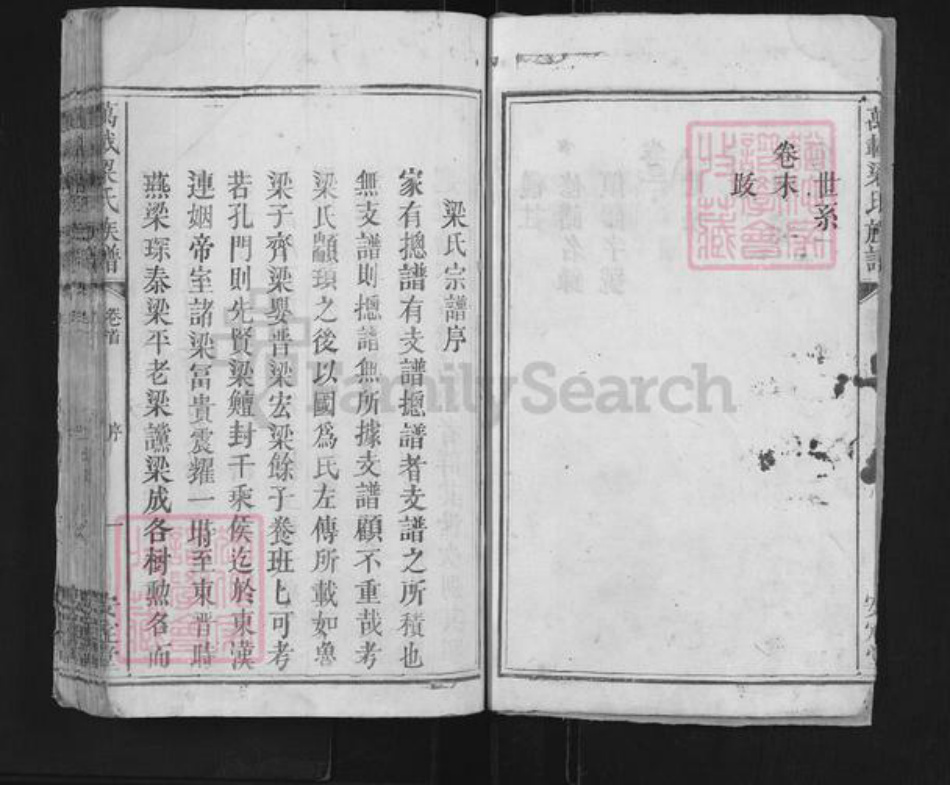 萬載梁氏族譜
世系
卷末
跋
安定堂
梁氏宗譜序
家有揔譜有支譜揔譜者支譜之所積也
無支譜則揔譜無所據支譜顧不重哉考
梁氏顓頊之後以國爲氏左傳所載如魯
梁子齊梁嬰晋梁宏梁餘子養班匕可考
若孔門則先賢梁鱣封千乘侯迄於東漢
連姻帝室諸梁富貴震耀一時至東晋時
燕梁琛泰梁平老梁讜梁成各樹勲名而
萬載梁氏族譜
卷首
序
一
安定堂
FamilySearch